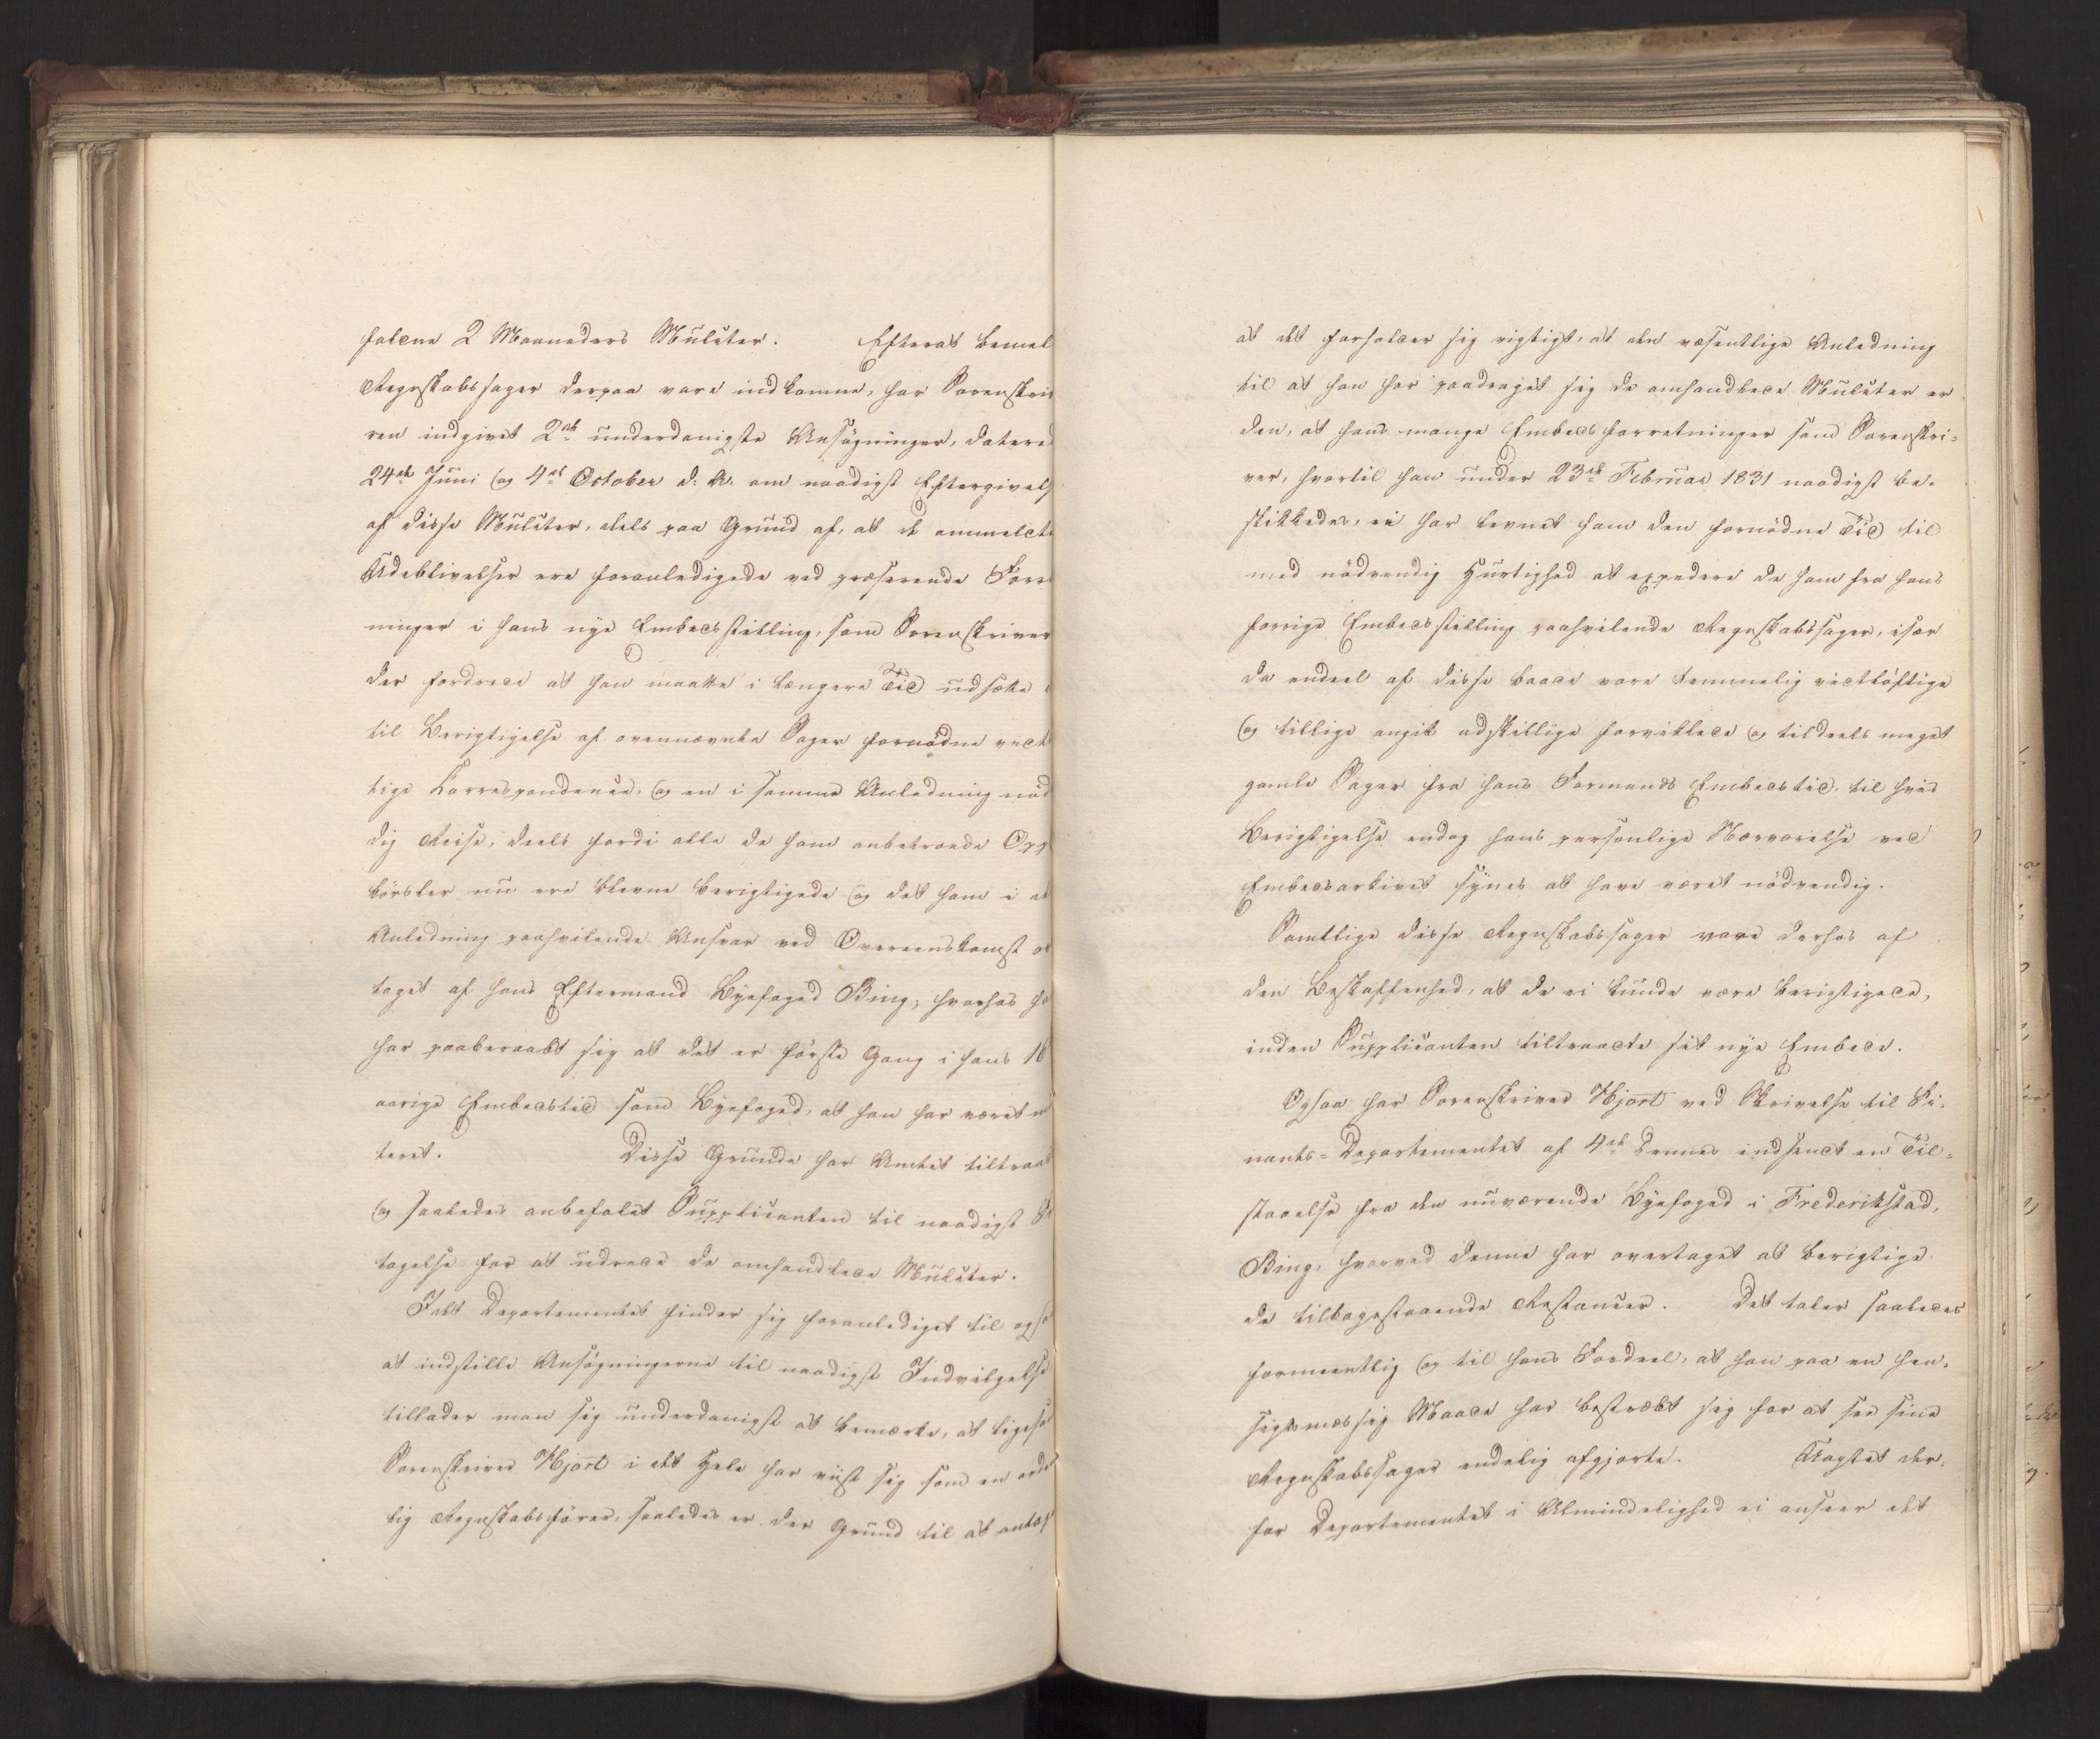 falene 2 Maaneders Mulcter. Efterat bemel
Regnskabssager derpaa vare indkomne, har Sorenskri
ren indgivet 2de underdanigste Ansøgninger, datere
24de Juni og 4de October d. A. om naadigst Eftergivels
af disse Mulcter, dels paa Grund af, at de anmeldte
Udeblivelser ere foranledigede ved præserende Forr
ninger i hans nye Embedsstilling, som Sorenskriver
der fordrede at han maatte i længere Tid udsætte
til Berigtigelse af ovennævnte Sager fornødne vidt
tige Correspondence, og en i samme Anledning nød
dig Reise, deels fordi alle de ham anbetroede Opp
børsler nu ere blevne berigtigede og det ham i
Anledning paahvilende Ansvar ved Overeenskomst o
taget af hans Eftermand Byefoged Bing, hvorhos h
har paaberaabt sig at det er første Gang i hans 16
aarige Embedstid som Byefoged, at han har været m
teret. Disse Grunde har Amtet tiltraadt
og saaledes anbefalet Supplicanten til naadigst F
tagelse for at udrede de omhandlede Mulcter.
Idet Departementet finder sig foranlediget til ogsa
at indstille Ansøgningerne til naadigst Indvilgelse
tillader man sig underdanigst at bemærke, at ligesa
Sorenskriver Hjort i det Hele har viist sig som en orde
lig Regnskabsfører, saaledes er der Grund til at antag
at det forholder sig rigtigt, at den væsentlige Anledning
til at han har paadraget sig de omhandlede Mulcter er
den, at hans mange Embedsforretninger som Sorenskri-
ver, hvortil han under 23de Februar 1831 naadigst be-
skikkedes, ei har levnet ham den fornødne Tid til
med nødvendig Hurtighed at expedere de ham fra hans
forrige Embedsstilling paahvilende Regnskabssager, især
da endeel af disse baade vare temmelig vidtløftige
og tillige angik adskillige forviklede og tildeels meget
gamle Sager fra hans Formands Embedstid, til hvis
Berigtigelse endog hans personlige Nærværelse ved
Embedsarkivet synes at have været nødvendig.
Samtlige disse Regnskabssager vare derhos af
den Beskaffenhed, at de ei kunde være berigtigede,
inden Supplicanten tiltraadte sit nye Embede.
Ogsaa har Sorenskriver Hjort ved Skrivelse til Fi-
nants-Departementet af 4de Dennes indsendt en Til-
staaelse fra den nuværende Byefoged i Frederikstad,
Bing, hvorved denne har overtaget at berigtige
de tilbagestaaende Restancer. Det taler saaledes
formeentlig og til hans Fordeel, at han paa en hen-
sigtsmæssig Maade har bestræbt sig for at see sine
Regnskabssager endelig afgjorte. Uagtet der-
for Departementet i Almindelighed ei anseer det